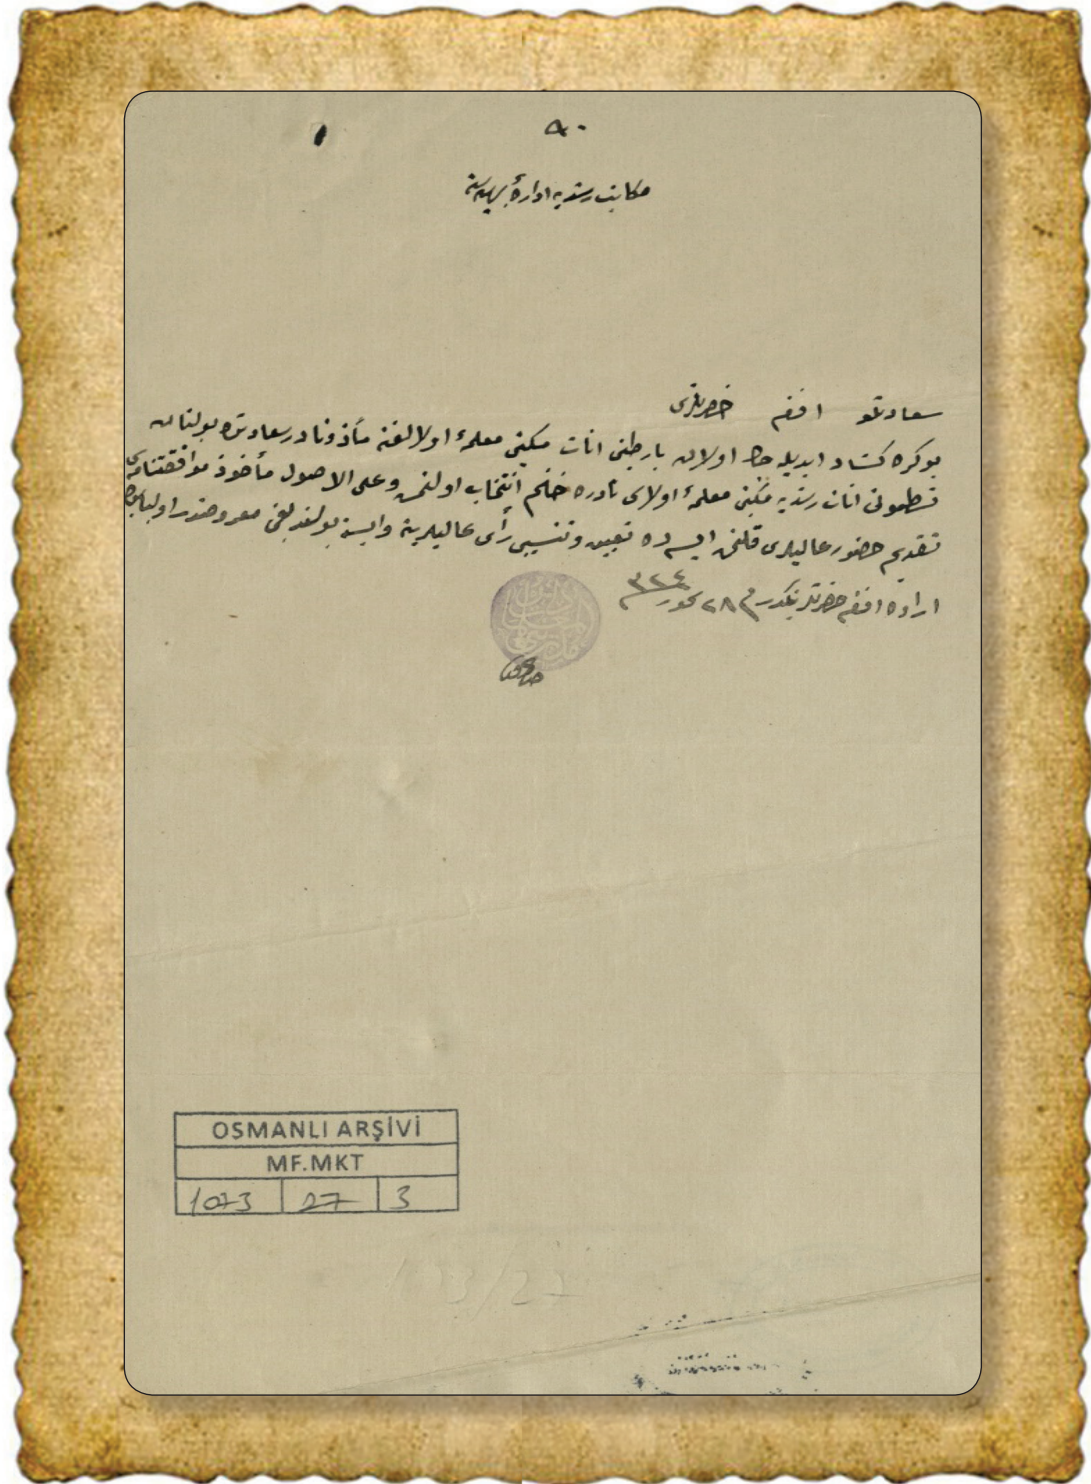 ٩٠
مکاتب رشدیه اداره‌ٔ بهیه‌سنه
سعادتلو افندم حضرتلری
بو کره کشاد ایدیله جك اولان بارطین اناث مکتبی معلمه‌ٔ اولالغنه مأذوناً درسعادتده بولنان
قسطمونی اناث رشدیه مکتبی معلمه‌ٔ اولاسی نادره خانم انتخاب اولنمش و علی الاصول مأخوذ موافقتنامه‌سی
تقدیم حضور عالیلری قلنمش ایسه ده تعیین و تنسیبی رأی عالیلرینه وابسته بولندیغی معروضدر اولبابده
اراده افندم حضرتلرینکدر فی ٢٨ تموز سنه ٣٢٤
OSMANLI ARŞİVİ
MF.MKT
1073 27 3